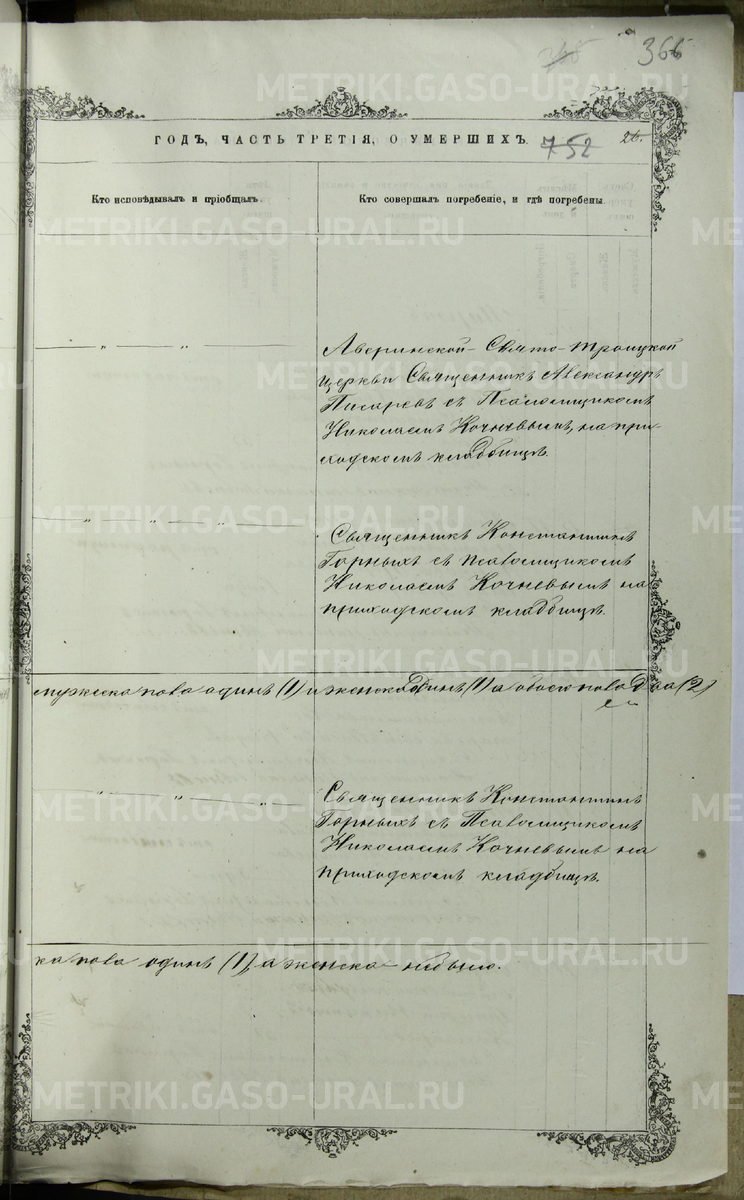 366
ГОДЪ, ЧАСТЬ ТРЕТІЯ, О УМЕРШИХЪ.
752
26.
Кто исповѣдывалъ и пріобщалъ.
Кто совершалъ погребеніе, и гдѣ погребены.
„ „
Аверинской Свято-Троицкой
церкви Священникъ Александръ
Писаревъ съ Псаломщикомъ
Николаемъ Кочневымъ, на при-
ходскомъ кладбищѣ.
„ „ „
Священникъ Константинъ
Горныхъ съ Псаломщикомъ
Николаемъ Кочневымъ на
приходскомъ кладбищѣ.
мужеска пола одинъ (1) и женска одинъ (1) а обоего пола два (2)
„ „ „
Священникъ Константинъ
Горныхъ съ Псаломщикомъ
Николаемъ Кочневымъ на
приходскомъ кладбищѣ.
ка пола одинъ (1), а женска небыло.
METRIKI.GASO-URAL.RU